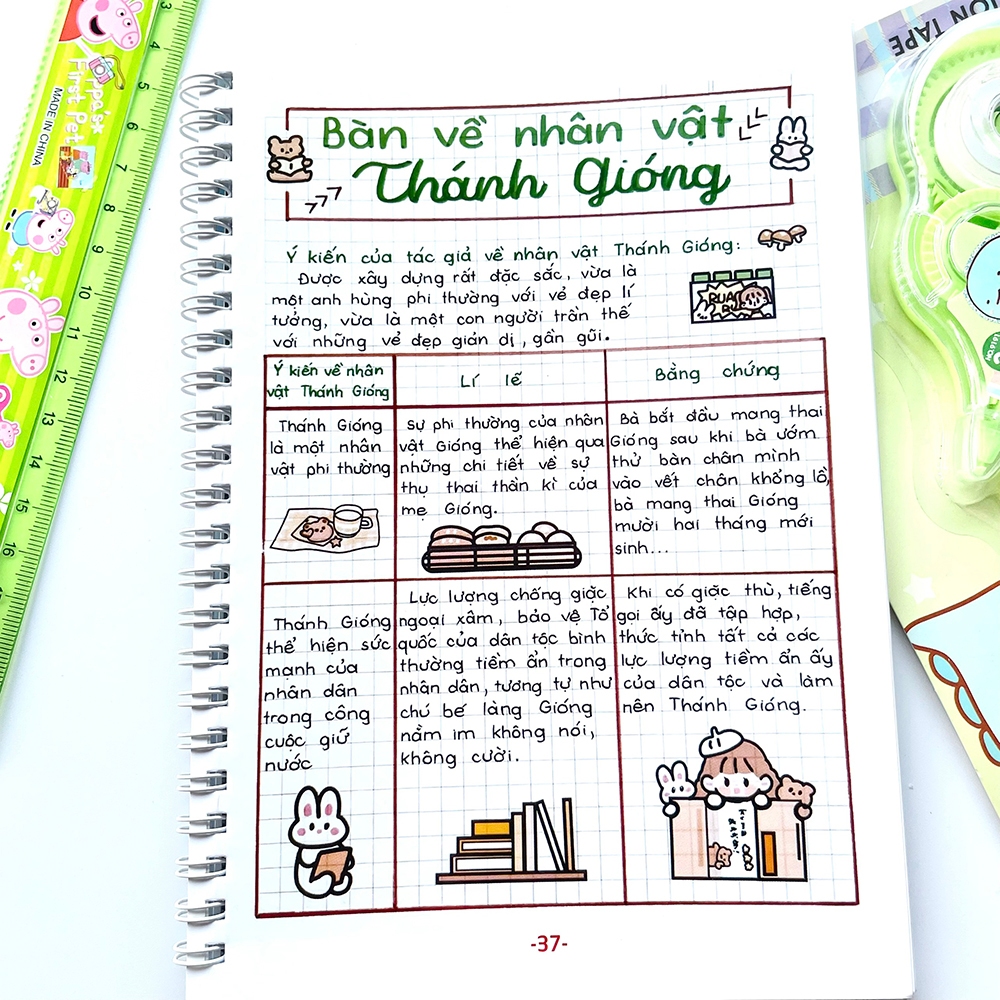 Peppa's
First Pet
MADE IN CHINA
3
4
5
6
7
8
9
10
11
12
13
14
15
16
17
ION TAPE
Bàn về nhân vật
Thánh Gióng
Ý kiến của tác giả về nhân vật Thánh Gióng:
Được xây dựng rất đặc sắc, vừa là
một anh hùng phi thường với vẻ đẹp lí
tưởng, vừa là một con người trần thế
với những vẻ đẹp giản dị, gần gũi.
Ý kiến về nhân
vật Thánh Gióng
Lí lẽ
Bằng chứng
Thánh Gióng
là một nhân
vật phi thường
Sự phi thường của nhân
vật Gióng thể hiện qua
những chi tiết về sự
thụ thai thần kì của
mẹ Gióng.
Bà bắt đầu mang thai
Gióng sau khi bà ướm
thử bàn chân mình
vào vết chân khổng lồ,
bà mang thai Gióng
mười hai tháng mới
sinh...
Thánh Gióng
thể hiện sức
mạnh của
nhân dân
trong công
cuộc giữ
nước
Lực lượng chống giặc
ngoại xâm, bảo vệ Tổ
quốc của dân tộc bình
thường tiềm ẩn trong
nhân dân, tương tự như
chú bé làng Gióng
nằm im không nói,
không cười.
Khi có giặc thù, tiếng
gọi ấy đã tập hợp,
thức tỉnh tất cả các
lực lượng tiềm ẩn ấy
của dân tộc và làm
nên Thánh Gióng.
-37-